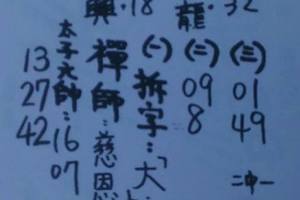 興:18
龍:32
13
27
42
太子元帥:16
07
禪師:慈恩
(一)
拆字:「大
(二)
09
8
(三)
01
49
二中一